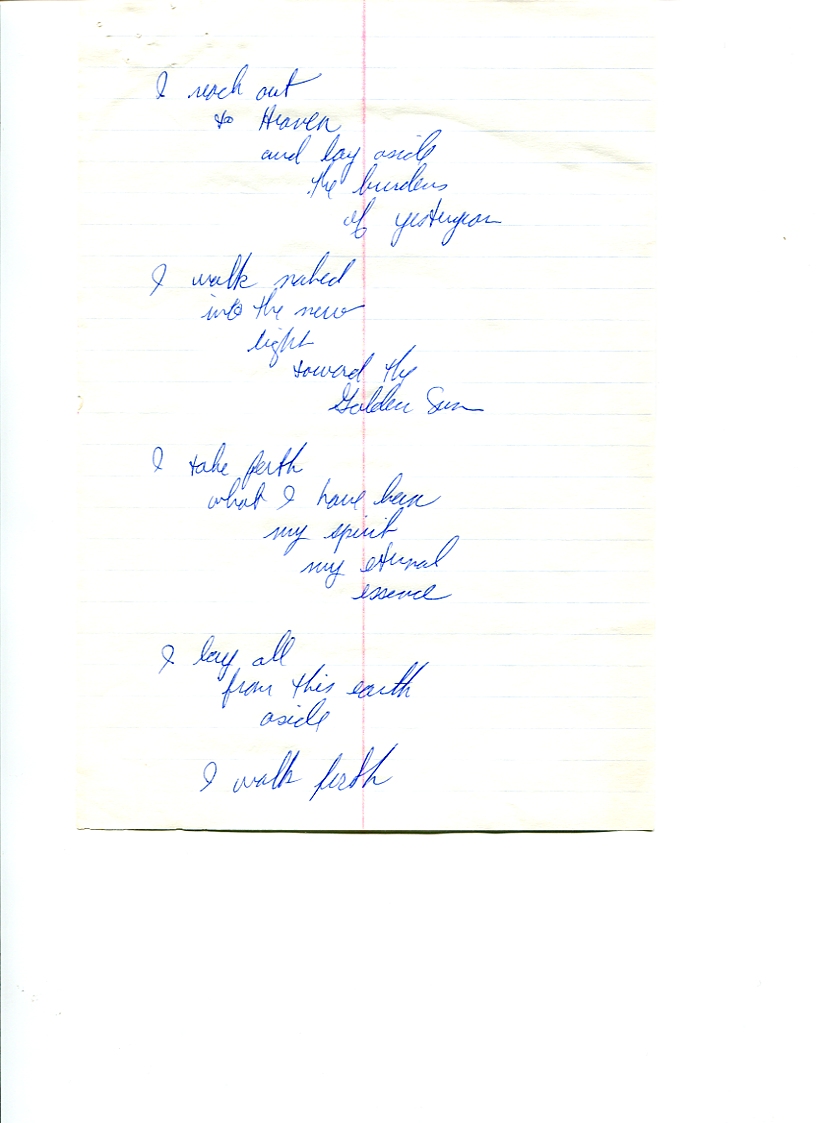 I reach out
to Heaven
and lay aside
the burdens
of yesteryear
I walk naked
into the new
light
toward the
Golden Sun
I take forth
what I have been
my spirit
my eternal
essence
I lay all
from this earth
aside
I walk forth